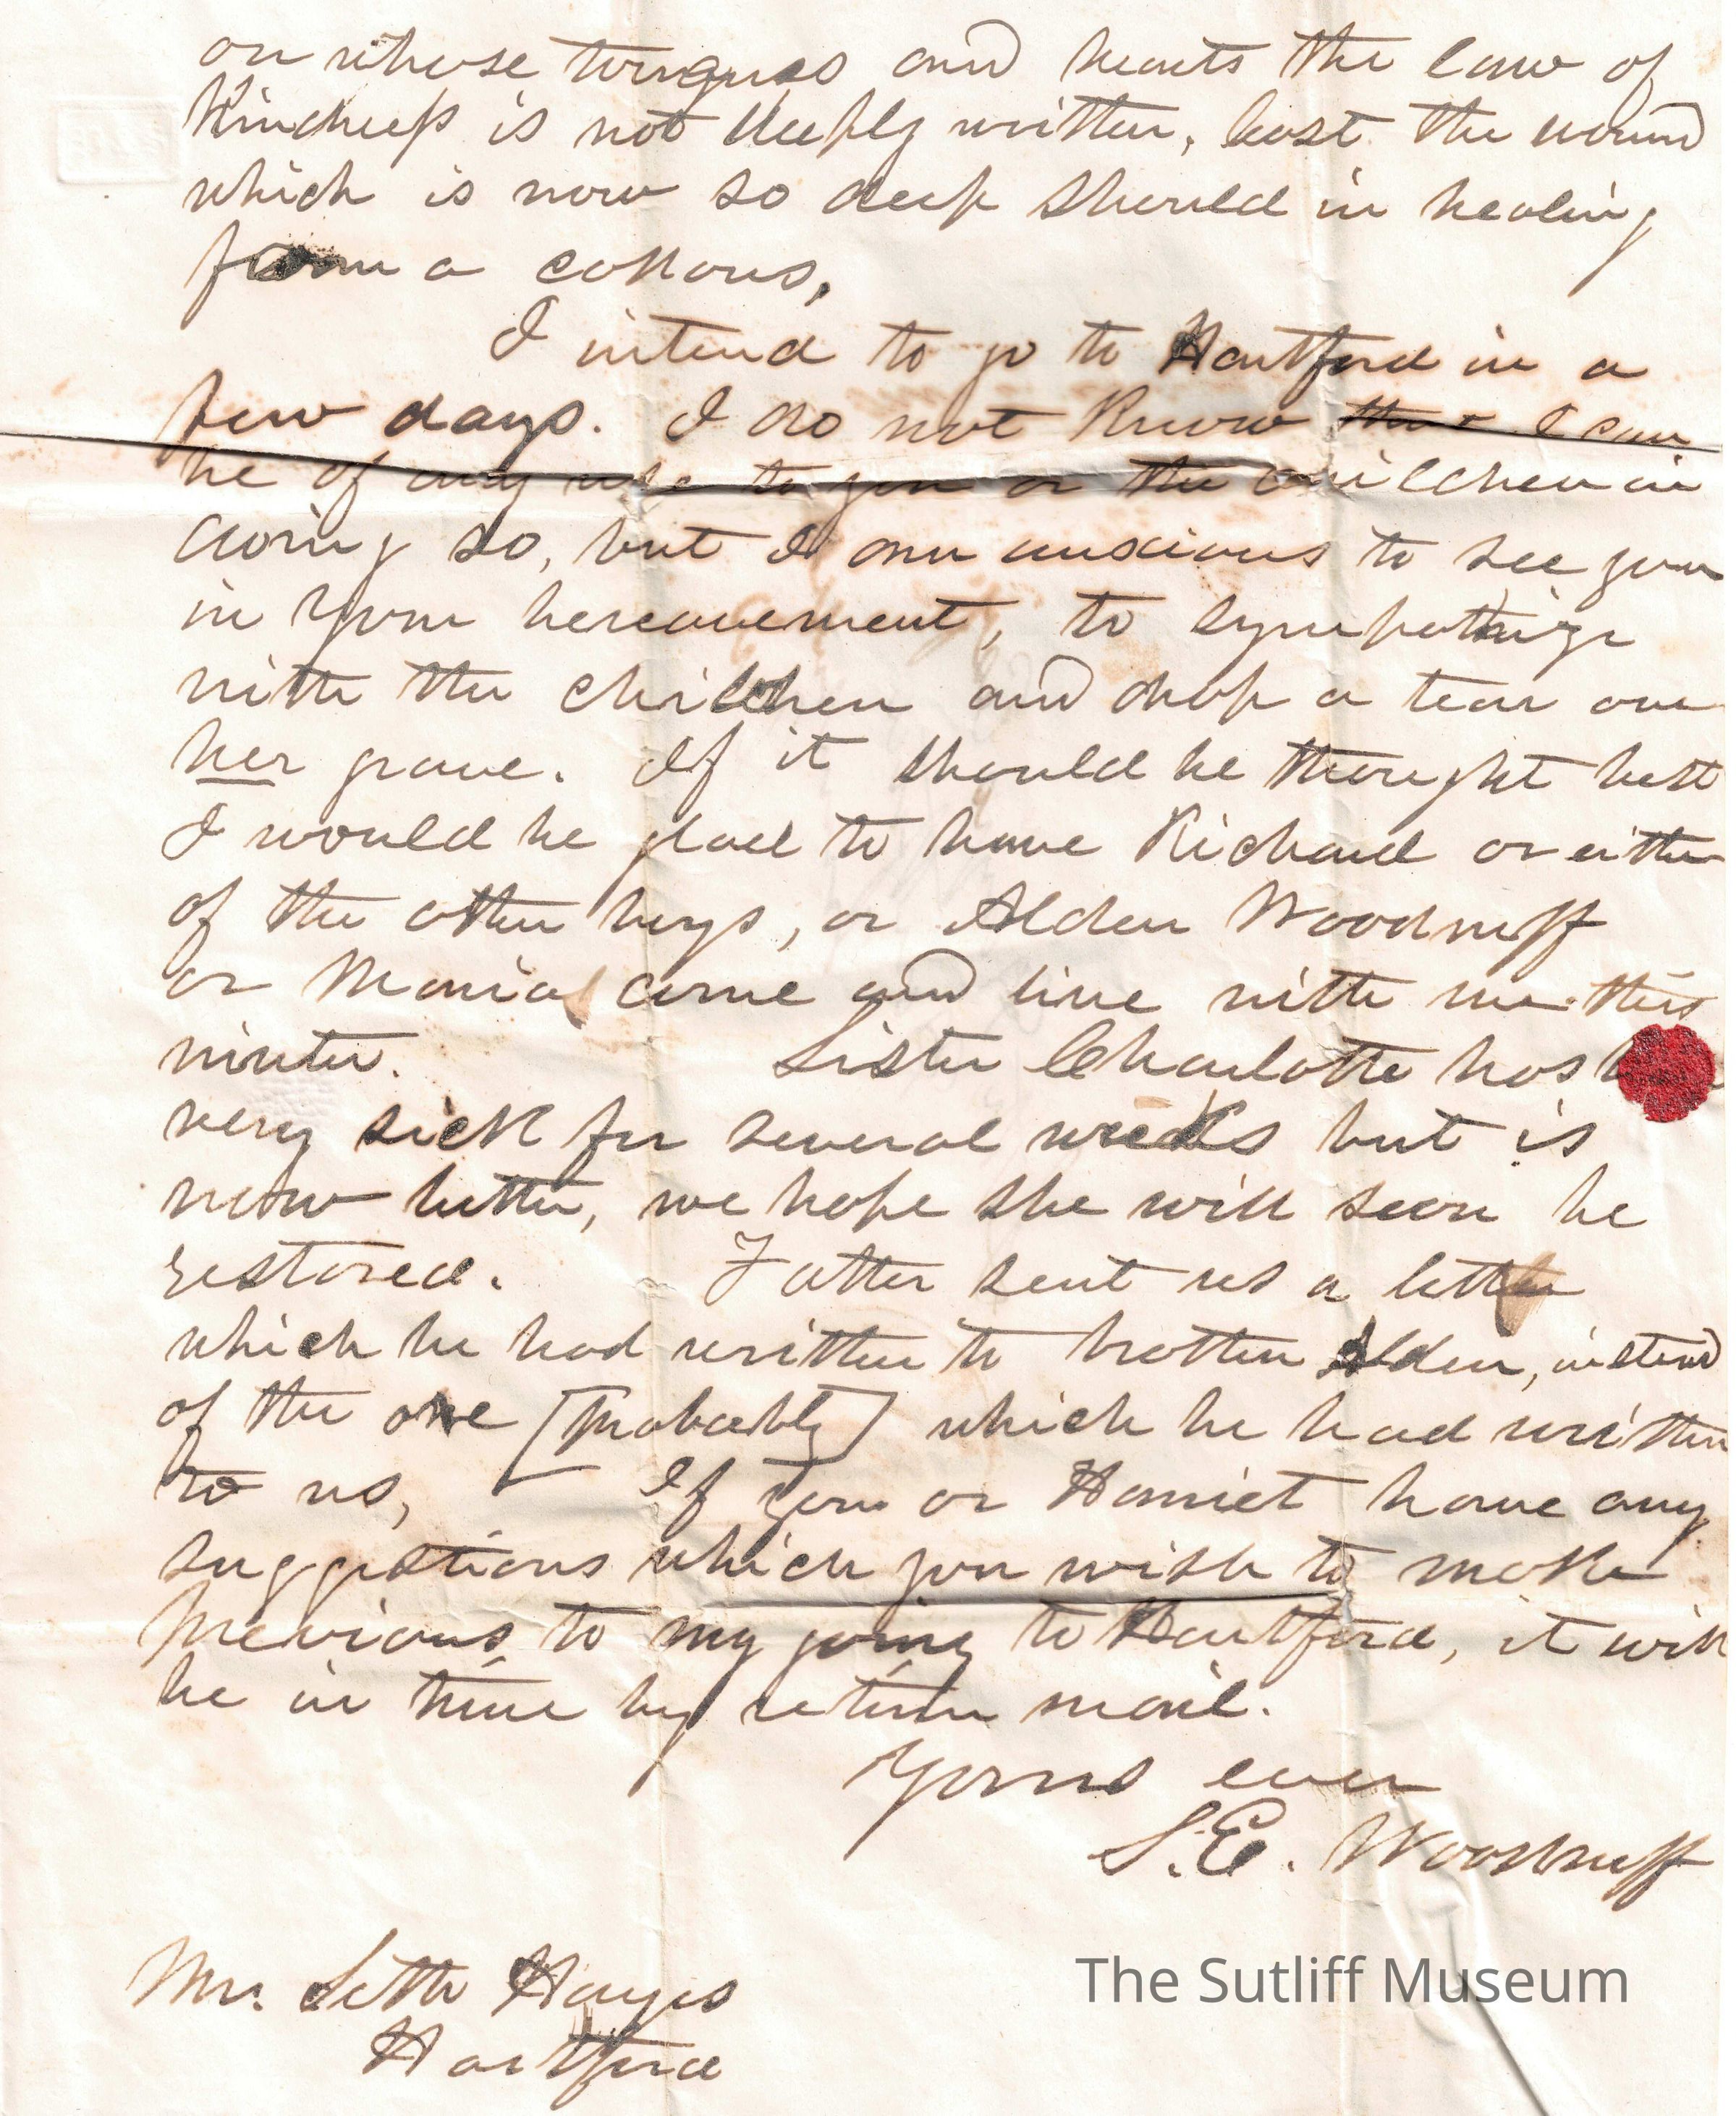 on whose tongues and hearts the law of
Kindness is not deeply written, least the wound
which is now so deep should in healing
from a callous,
I intend to go to Hartford in a
few days. I do not Know that I can
be of any use to you or the children in
doing so, but I am anxious to see you
in Your bereavement, to sympathize
with the children and drop a tear on
her grave. If it should be thought best
I would be glad to have Richard or either
of the other boys, or Alden Woodruff
or Maria come and live with me this
winter. Sister Charlotte has
very sick for several weeks but is
now better, we hope she will soon be
restored. Father sent us a letter
which he had written to brother Alden, instead
of the one [probably] which he had written
to us, If you or Harriet have any
suggestions which you wish to make
previous to my going to Hartford, it will
be in time by return mail.
Yours ever
S.E. Woodruff
Mr. Seth Hayes
Hartford
The Sutliff Museum